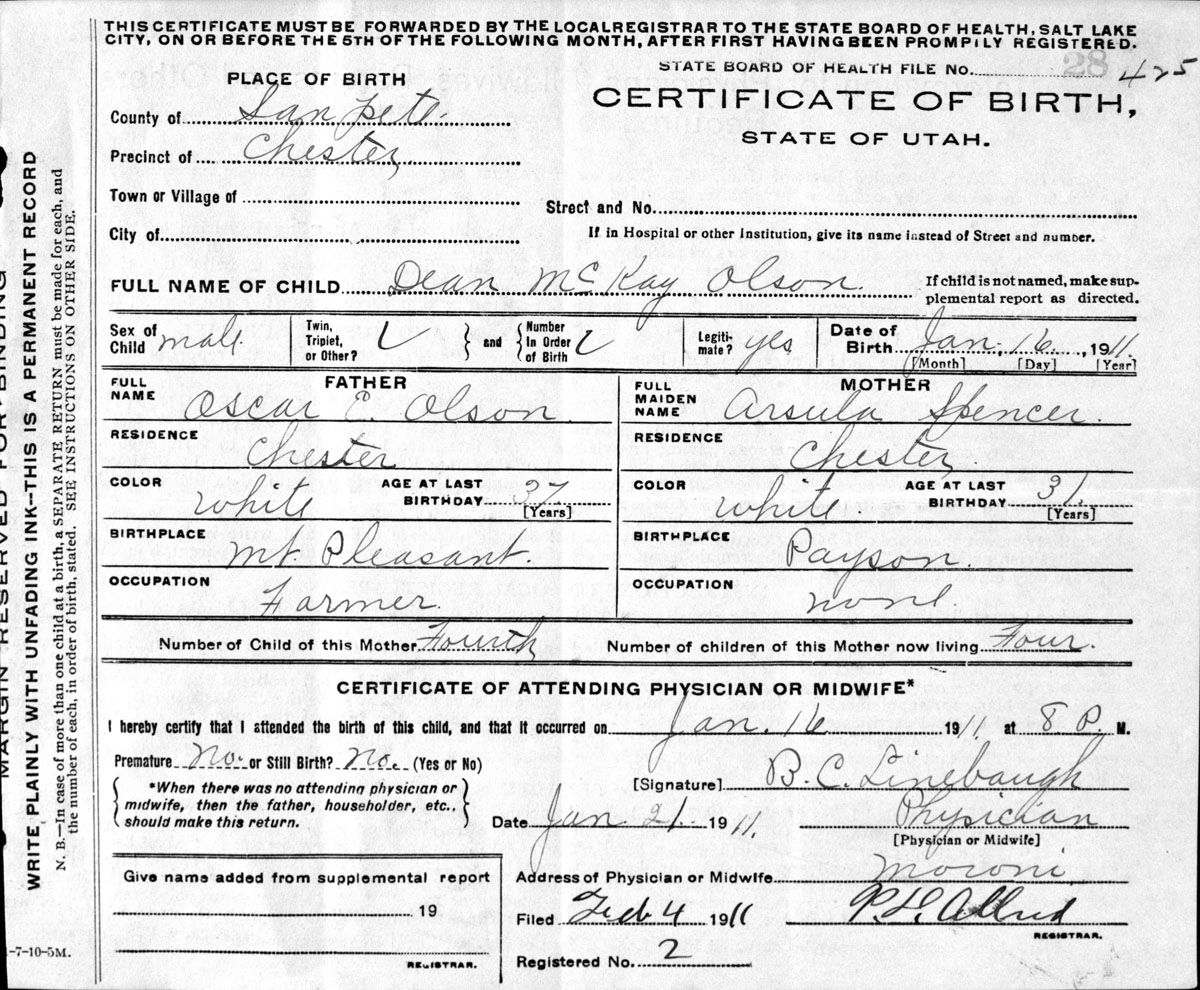 THIS CERTIFICATE MUST BE FORWARDED BY THE LOCALREGISTRAR TO THE STATE BOARD OF HEALTH, SALT LAKE
CITY, ON OR BEFORE THE 5TH OF THE FOLLOWING MONTH, AFTER FIRST HAVING BEEN PROMPILY REGISTERED.
STATE BOARD OF HEALTH FILE No. 28 425
PLACE OF BIRTH
CERTIFICATE OF BIRTH,
STATE OF UTAH.
County of San pete.
Precinct of Chester
Town or Village of
Street and No.
City of
If in Hospital or other Institution, give its name instead of Street and number.
FULL NAME OF CHILD Dean McKay Olson. If child is not named, make sup-
plemental report as directed.
Sex of Child male Twin, Triplet, or Other? and Number In Order of Birth Legiti-mate? yes Date of Birth Jan. 16, 1911.
[Month] [Day] [Year]
FATHER MOTHER
FULL NAME Oscar E. Olson. FULL MAIDEN NAME Arsula Spencer.
RESIDENCE Chester RESIDENCE Chester
COLOR White AGE AT LAST BIRTHDAY 37 [Years] COLOR White AGE AT LAST BIRTHDAY 31. [Years]
BIRTHPLACE Mt. Pleasant. BIRTHPLACE Payson.
OCCUPATION Farmer. OCCUPATION none
Number of Child of this Mother Fourth Number of children of this Mother now living Four.
CERTIFICATE OF ATTENDING PHYSICIAN OR MIDWIFE*
I hereby certify that I attended the birth of this child, and that it occurred on Jan. 16 1911. at 8 P. M.
Premature no. or Still Birth? no. (Yes or No)
[Signature] B. C. Linebaugh
*When there was no attending physician or
midwife, then the father, householder, etc.,
should make this return.
Date Jan 21. 1911. Physician
[Physician or Midwife]
Give name added from supplemental report
Address of Physician or Midwife Moroni
19
Filed Feb 4 1911 P. L. Allred
REGISTRAR.
Registered No. 2
REGISTRAR.
-7-10-5M.
MARGIN RESERVED FOR BINDING
WRITE PLAINLY WITH UNFADING INK—THIS IS A PERMANENT RECORD
N. B.—In case of more than one child at a birth, a SEPARATE RETURN must be made for each, and
the number of each, in order of birth, stated. SEE INSTRUCTIONS ON OTHER SIDE.